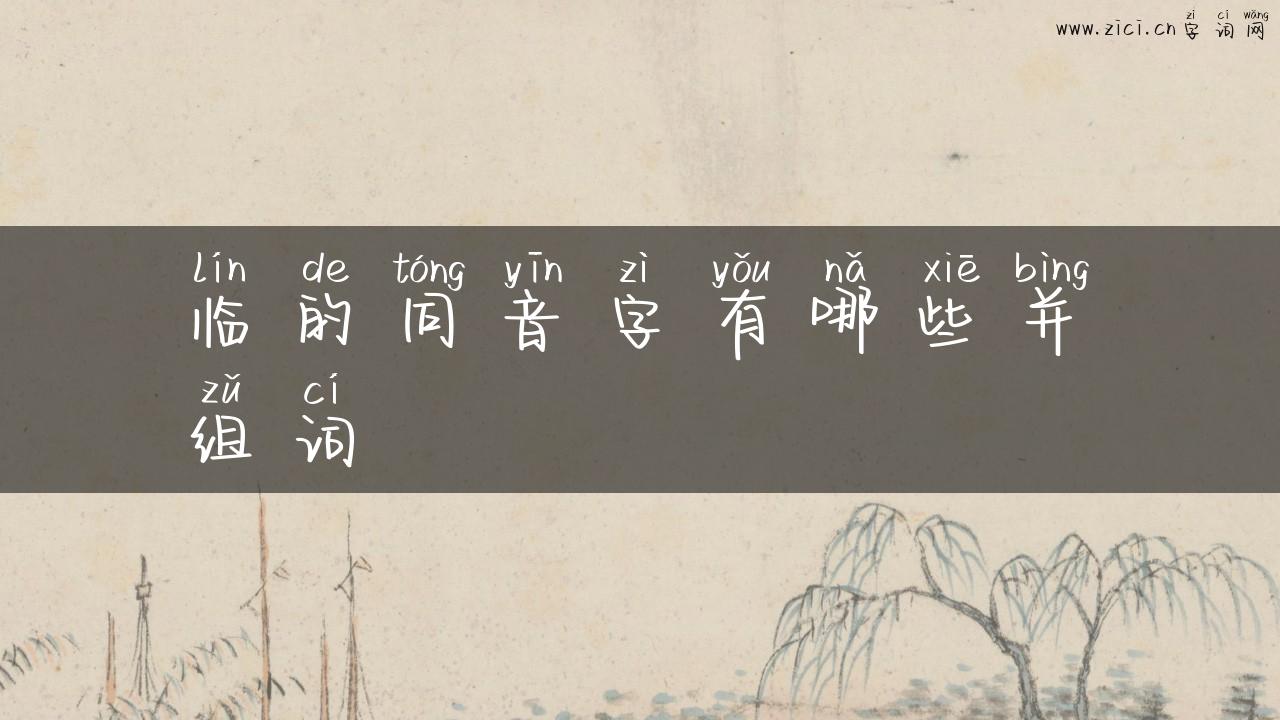 zì cí wǎng
www.zici.cn 字词网
lín de tóng yīn zì yǒu nǎ xiē bìng
临的同音字有哪些并
zǔ cí
组词